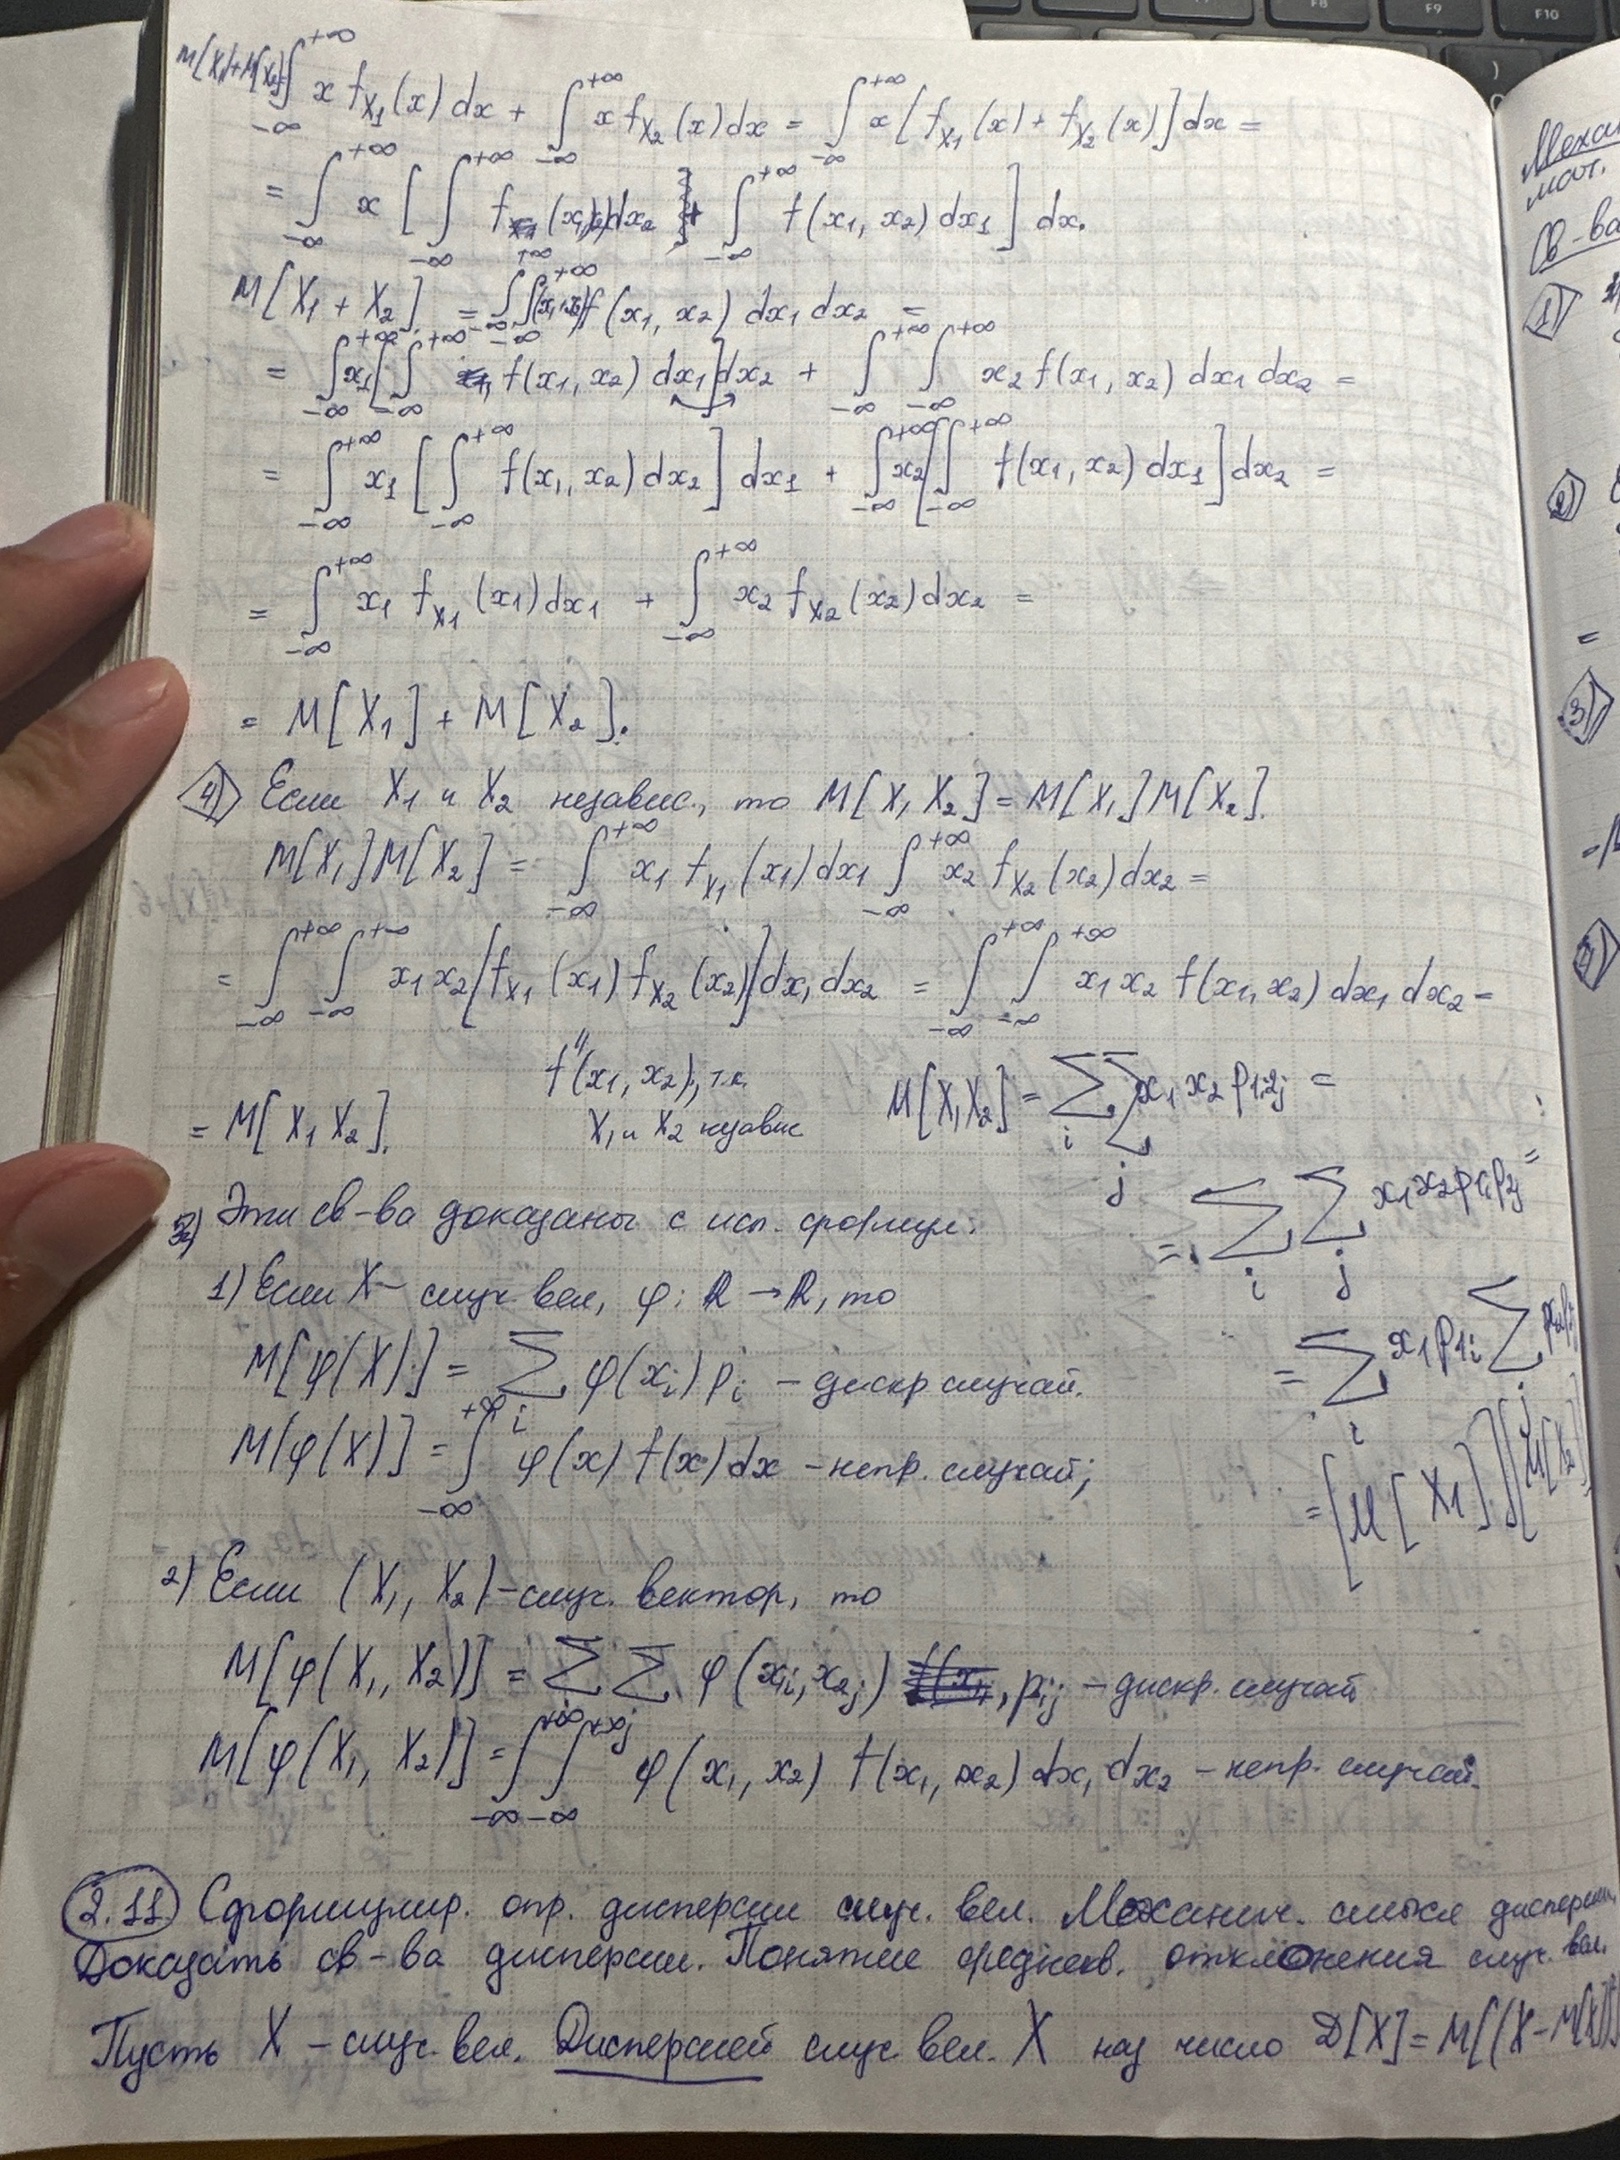 M[X₁]+M[X₂]= ∫_{-∞}^{+∞} x f_{X₁}(x) dx + ∫_{-∞}^{+∞} x f_{X₂}(x) dx = ∫_{-∞}^{+∞} x [f_{X₁}(x) + f_{X₂}(x)] dx =
= ∫_{-∞}^{+∞} x [ ∫_{-∞}^{+∞} f(x₁,x₂) dx₂ + ∫_{-∞}^{+∞} f(x₁, x₂) dx₁ ] dx.
M[X₁ + X₂] = ∫_{-∞}^{+∞} ∫_{-∞}^{+∞} (x₁+x₂) f(x₁, x₂) dx₁ dx₂ =
= ∫_{-∞}^{+∞} x₁ [ ∫_{-∞}^{+∞} f(x₁, x₂) dx₁ ] dx₂ + ∫_{-∞}^{+∞} ∫_{-∞}^{+∞} x₂ f(x₁, x₂) dx₁ dx₂ =
= ∫_{-∞}^{+∞} x₁ [ ∫_{-∞}^{+∞} f(x₁, x₂) dx₂ ] dx₁ + ∫_{-∞}^{+∞} x₂ [ ∫_{-∞}^{+∞} f(x₁, x₂) dx₁ ] dx₂ =
= ∫_{-∞}^{+∞} x₁ f_{X₁}(x₁) dx₁ + ∫_{-∞}^{+∞} x₂ f_{X₂}(x₂) dx₂ =
= M[X₁] + M[X₂].
4) Если X₁ и X₂ независ., то M[X₁ X₂] = M[X₁] M[X₂].
M[X₁] M[X₂] = ∫_{-∞}^{+∞} x₁ f_{X₁}(x₁) dx₁ ∫_{-∞}^{+∞} x₂ f_{X₂}(x₂) dx₂ =
= ∫_{-∞}^{+∞} ∫_{-∞}^{+∞} x₁ x₂ [f_{X₁}(x₁) f_{X₂}(x₂)] dx₁ dx₂ = ∫_{-∞}^{+∞} ∫_{-∞}^{+∞} x₁ x₂ f(x₁, x₂) dx₁ dx₂ =
" f(x₁, x₂), т.к.
X₁ и X₂ независ
= M[X₁ X₂].
M[X₁X₂] = ∑_i ∑_j x₁ x₂ p₁ᵢ₂ⱼ =
= ∑_i ∑_j x₁ x₂ p₁ᵢ p₂ⱼ =
= ∑_i x₁ p₁ᵢ ∑_j
= [M[X₁]] [M[X₂]]
Эти св-ва доказаны с исп. формул:
1) Если X – случ вел, φ: ℝ → ℝ, то
M[φ(X)] = ∑_i φ(xᵢ) pᵢ – дискр случай.
M[φ(X)] = ∫_{-∞}^{+∞} φ(x) f(x) dx – непр. случай;
2) Если (X₁, X₂) – случ. вектор, то
M[φ(X₁, X₂)] = ∑_i ∑_j φ(x₁ᵢ, x₂ⱼ) pᵢⱼ – дискр. случай
M[φ(X₁, X₂)] = ∫_{-∞}^{+∞} ∫_{-∞}^{+∞} φ(x₁, x₂) f(x₁, x₂) dx₁ dx₂ – непр. случай.
2.11 Сформулир. опр. дисперсии случ. вел. Механич. смысл дисперсии.
Доказать св-ва дисперсии. Понятие среднекв. отклонения случ. вел.
Пусть X – случ. вел. Дисперсией случ вел. X наз число D[X] = M[(X – M[X])
Механ
мат.
Св-ва
1)
2)
=
3)
4)
F8
F9
F10